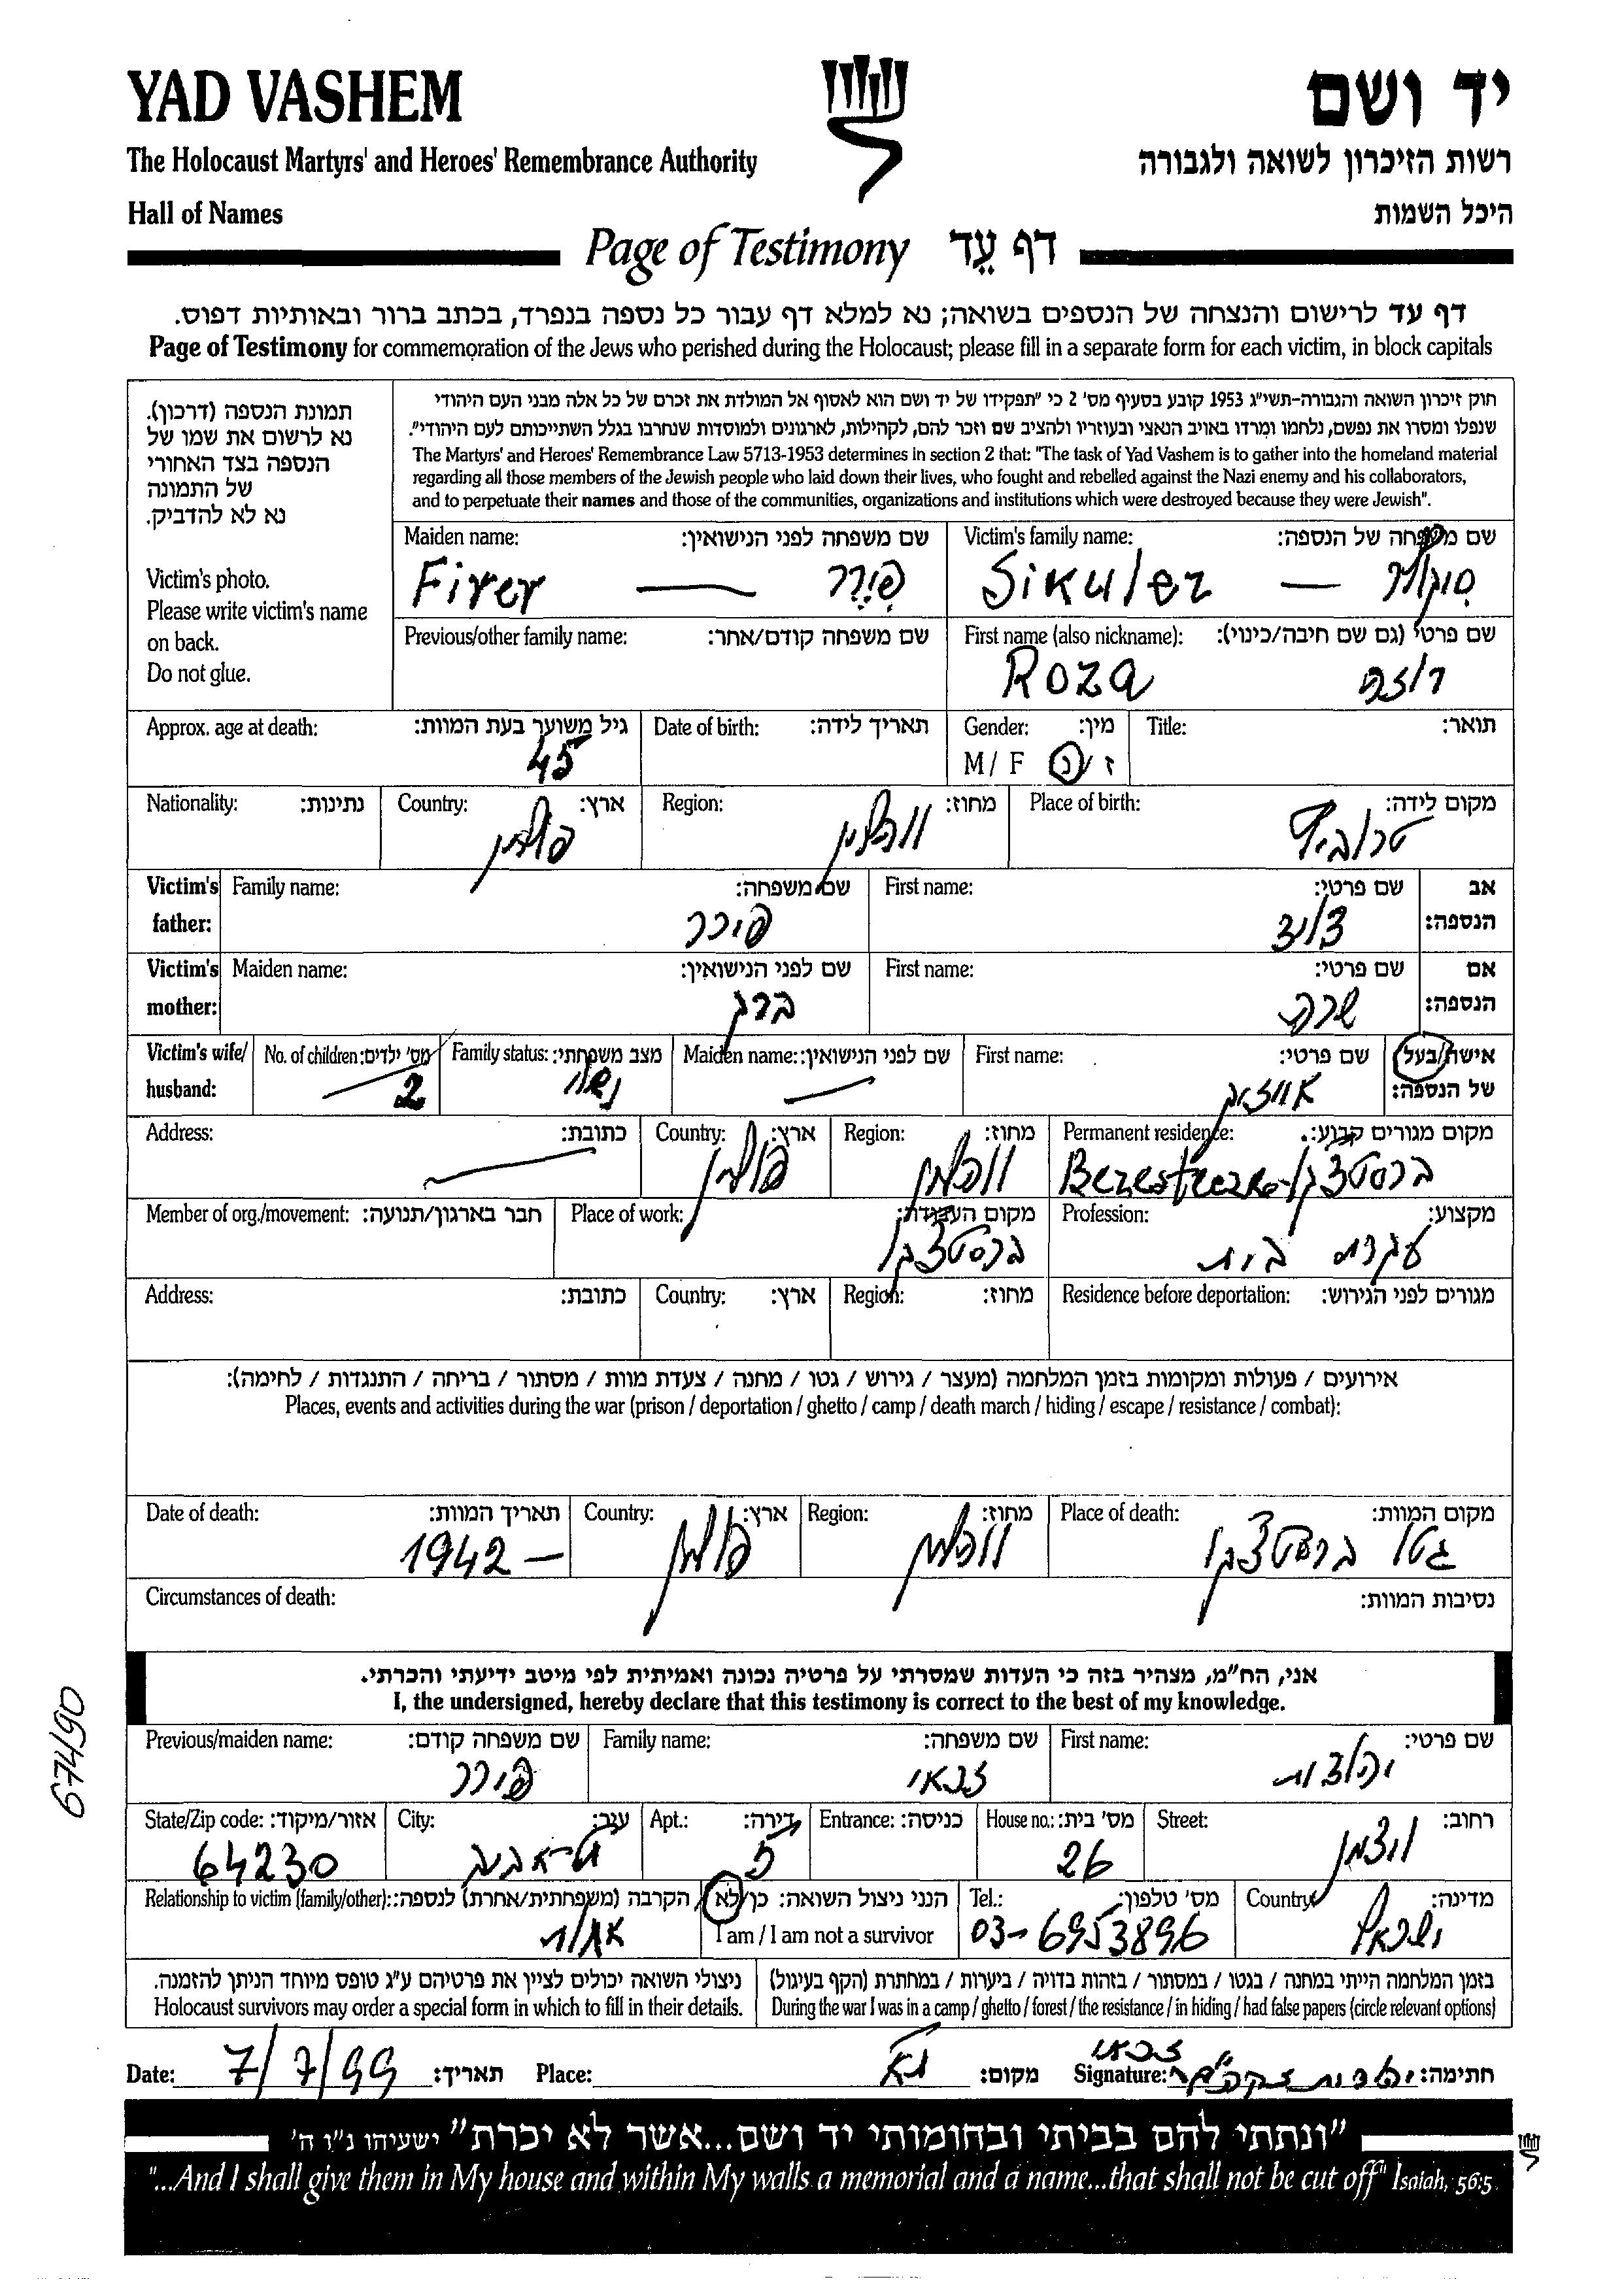 YAD VASHEM
יד ושם
The Holocaust Martyrs' and Heroes' Remembrance Authority
רשות הזיכרון לשואה ולגבורה
Hall of Names
היכל השמות
Page of Testimony דף עֵד
דף עד לרישום והנצחה של הנספים בשואה; נא למלא דף עבור כל נספה בנפרד, בכתב ברור ובאותיות דפוס.
Page of Testimony for commemoration of the Jews who perished during the Holocaust; please fill in a separate form for each victim, in block capitals
תמונת הנספה (דרכון).
נא לרשום את שמו של
הנספה בצד האחורי
של התמונה
נא לא להדביק.
Victim's photo.
Please write victim's name
on back.
Do not glue.
חוק זיכרון השואה והגבורה-תשי"ג 1953 קובע בסעיף מס' 2 כי "תפקידו של יד ושם הוא לאסוף אל המולדת את זכרם של כל אלה מבני העם היהודי
שנפלו ומסרו את נפשם, נלחמו ומרדו באויב הנאצי ובעוזריו ולהציב שם וזכר להם, לקהילות, לארגונים ולמוסדות שנחרבו בגלל השתייכותם לעם היהודי".
The Martyrs' and Heroes' Remembrance Law 5713-1953 determines in section 2 that: "The task of Yad Vashem is to gather into the homeland material
regarding all those members of the Jewish people who laid down their lives, who fought and rebelled against the Nazi enemy and his collaborators,
and to perpetuate their names and those of the communities, organizations and institutions which were destroyed because they were Jewish".
Victim's family name: שם משפחה של הנספה:
Sikuler — סיקולר
Maiden name: שם משפחה לפני הנישואין:
Firer — פירר
First name (also nickname): שם פרטי (גם שם חיבה/כינוי):
Roza רוזה
Previous/other family name: שם משפחה קודם/אחר:
Title: תואר:
Gender: מין:
M / F ז / נ
Date of birth: תאריך לידה:
Approx. age at death: גיל משוער בעת המוות:
45
Place of birth: מקום לידה:
Region: מחוז:
ווהלין
Country: ארץ:
פולין
Nationality: נתינות:
Victim's father: אב הנספה:
First name: שם פרטי:
Family name: שם משפחה:
פירר
Victim's mother: אם הנספה:
First name: שם פרטי:
שרה
Maiden name: שם לפני הנישואין:
ברג
Victim's wife/ husband: אישה/בעל של הנספה:
First name: שם פרטי:
Maiden name: שם לפני הנישואין:
—
Family status: מצב משפחתי:
נשוי
No. of children: מס' ילדים:
2
Permanent residence: מקום מגורים קבוע:
Berestreczko- ברסטצקו
Region: מחוז:
ווהלין
Country: ארץ:
פולין
Address: כתובת:
Profession: מקצוע:
עקרת בית
Place of work: מקום העבודה:
ברסטצקו
Member of org./movement: חבר בארגון/תנועה:
Residence before deportation: מגורים לפני הגירוש:
Region: מחוז:
Country: ארץ:
Address: כתובת:
אירועים / פעולות ומקומות בזמן המלחמה (מעצר / גירוש / גטו / מחנה / צעדת מוות / מסתור / בריחה / התנגדות / לחימה):
Places, events and activities during the war (prison / deportation / ghetto / camp / death march / hiding / escape / resistance / combat):
Place of death: מקום המוות:
גטו ברסטצקו
Region: מחוז:
ווהלין
Country: ארץ:
פולין
Date of death: תאריך המוות:
1942 —
Circumstances of death: נסיבות המוות:
אני, הח"מ, מצהיר בזה כי העדות שמסרתי על פרטיה נכונה ואמיתית לפי מיטב ידיעתי והכרתי.
I, the undersigned, hereby declare that this testimony is correct to the best of my knowledge.
First name: שם פרטי:
יהודית
Family name: שם משפחה:
זכאי
Previous/maiden name: שם משפחה קודם:
פירר
Street: רחוב:
ויצמן
House no.: מס' בית:
26
Entrance: כניסה:
Apt.: דירה:
5
City: עיר:
תל-אביב
State/Zip code: אזור/מיקוד:
64230
Country: מדינה:
ישראל
Tel.: מס' טלפון:
03-6953896
הנני ניצול השואה: כן/לא
I am / I am not a survivor
Relationship to victim (family/other): הקרבה (משפחתית/אחרת) לנספה:
בזמן המלחמה הייתי במחנה / בגטו / במסתור / בזהות בדויה / ביערות / במחתרת (הקף בעיגול)
During the war I was in a camp / ghetto / forest / the resistance / in hiding / had false papers (circle relevant options)
ניצולי השואה יכולים לציין את פרטיהם ע"ג טופס מיוחד הניתן להזמנה.
Holocaust survivors may order a special form in which to fill in their details.
Date: 7/7/99 תאריך: Place: ת"א מקום: Signature: זכאי חתימה:
"ונתתי להם בביתי ובחומותי יד ושם...אשר לא יכרת" ישעיהו נ"ו ה'
"...And I shall give them in My house and within My walls a memorial and a name...that shall not be cut off" Isaiah, 56:5
674/90